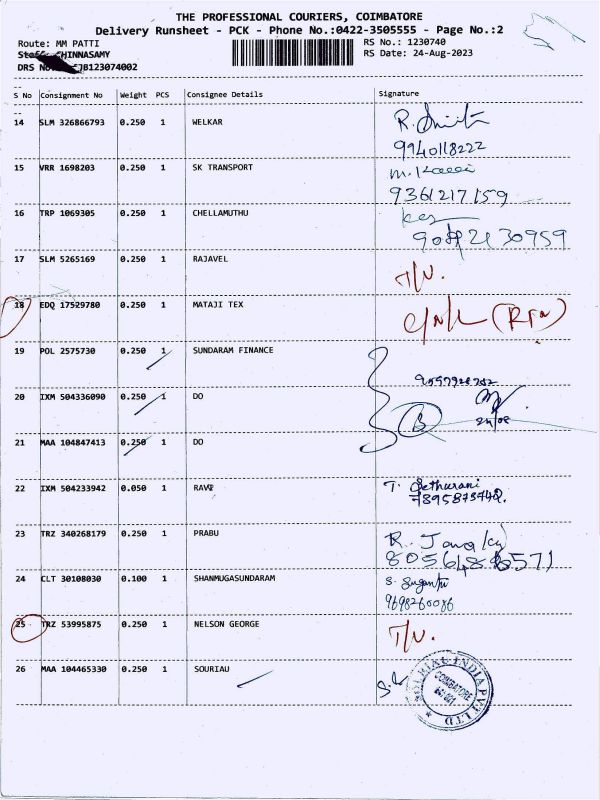 THE PROFESSIONAL COURIERS, COIMBATORE
Delivery Runsheet - PCK - Phone No.:0422-3505555 - Page No.:2
Route: MM PATTI
RS No.: 1230740
CHINNASAMY
RS Date: 24-Aug-2023
DRS JB123074002
S No Consignment No Weight PCS Consignee Details Signature
14 SLM 326866793 0.250 1 WELKAR
9940118222
15 VRR 1698203 0.250 1 SK TRANSPORT
9361217159
16 TRP 1069305 0.250 1 CHELLAMUTHU
17 SLM 5265169 0.250 1 RAJAVEL
18 EDQ 17529780 0.250 1 MATAJI TEX
19 POL 2575730 0.250 1 SUNDARAM FINANCE
20 IXM 504336090 0.250 1 DO
3
24/08
21 MAA 104847413 0.250 1 DO
22 IXM 504233942 0.050 1
23 TRZ 340268179 0.250 1 PRABU
24 CLT 30108030 0.100 1 SHANMUGASUNDARAM
25 TRZ 53995875 0.250 1 NELSON GEORGE
26 MAA 104465330 0.250 1 SOURIAU
INDIA PVT LTD
COIMBATORE